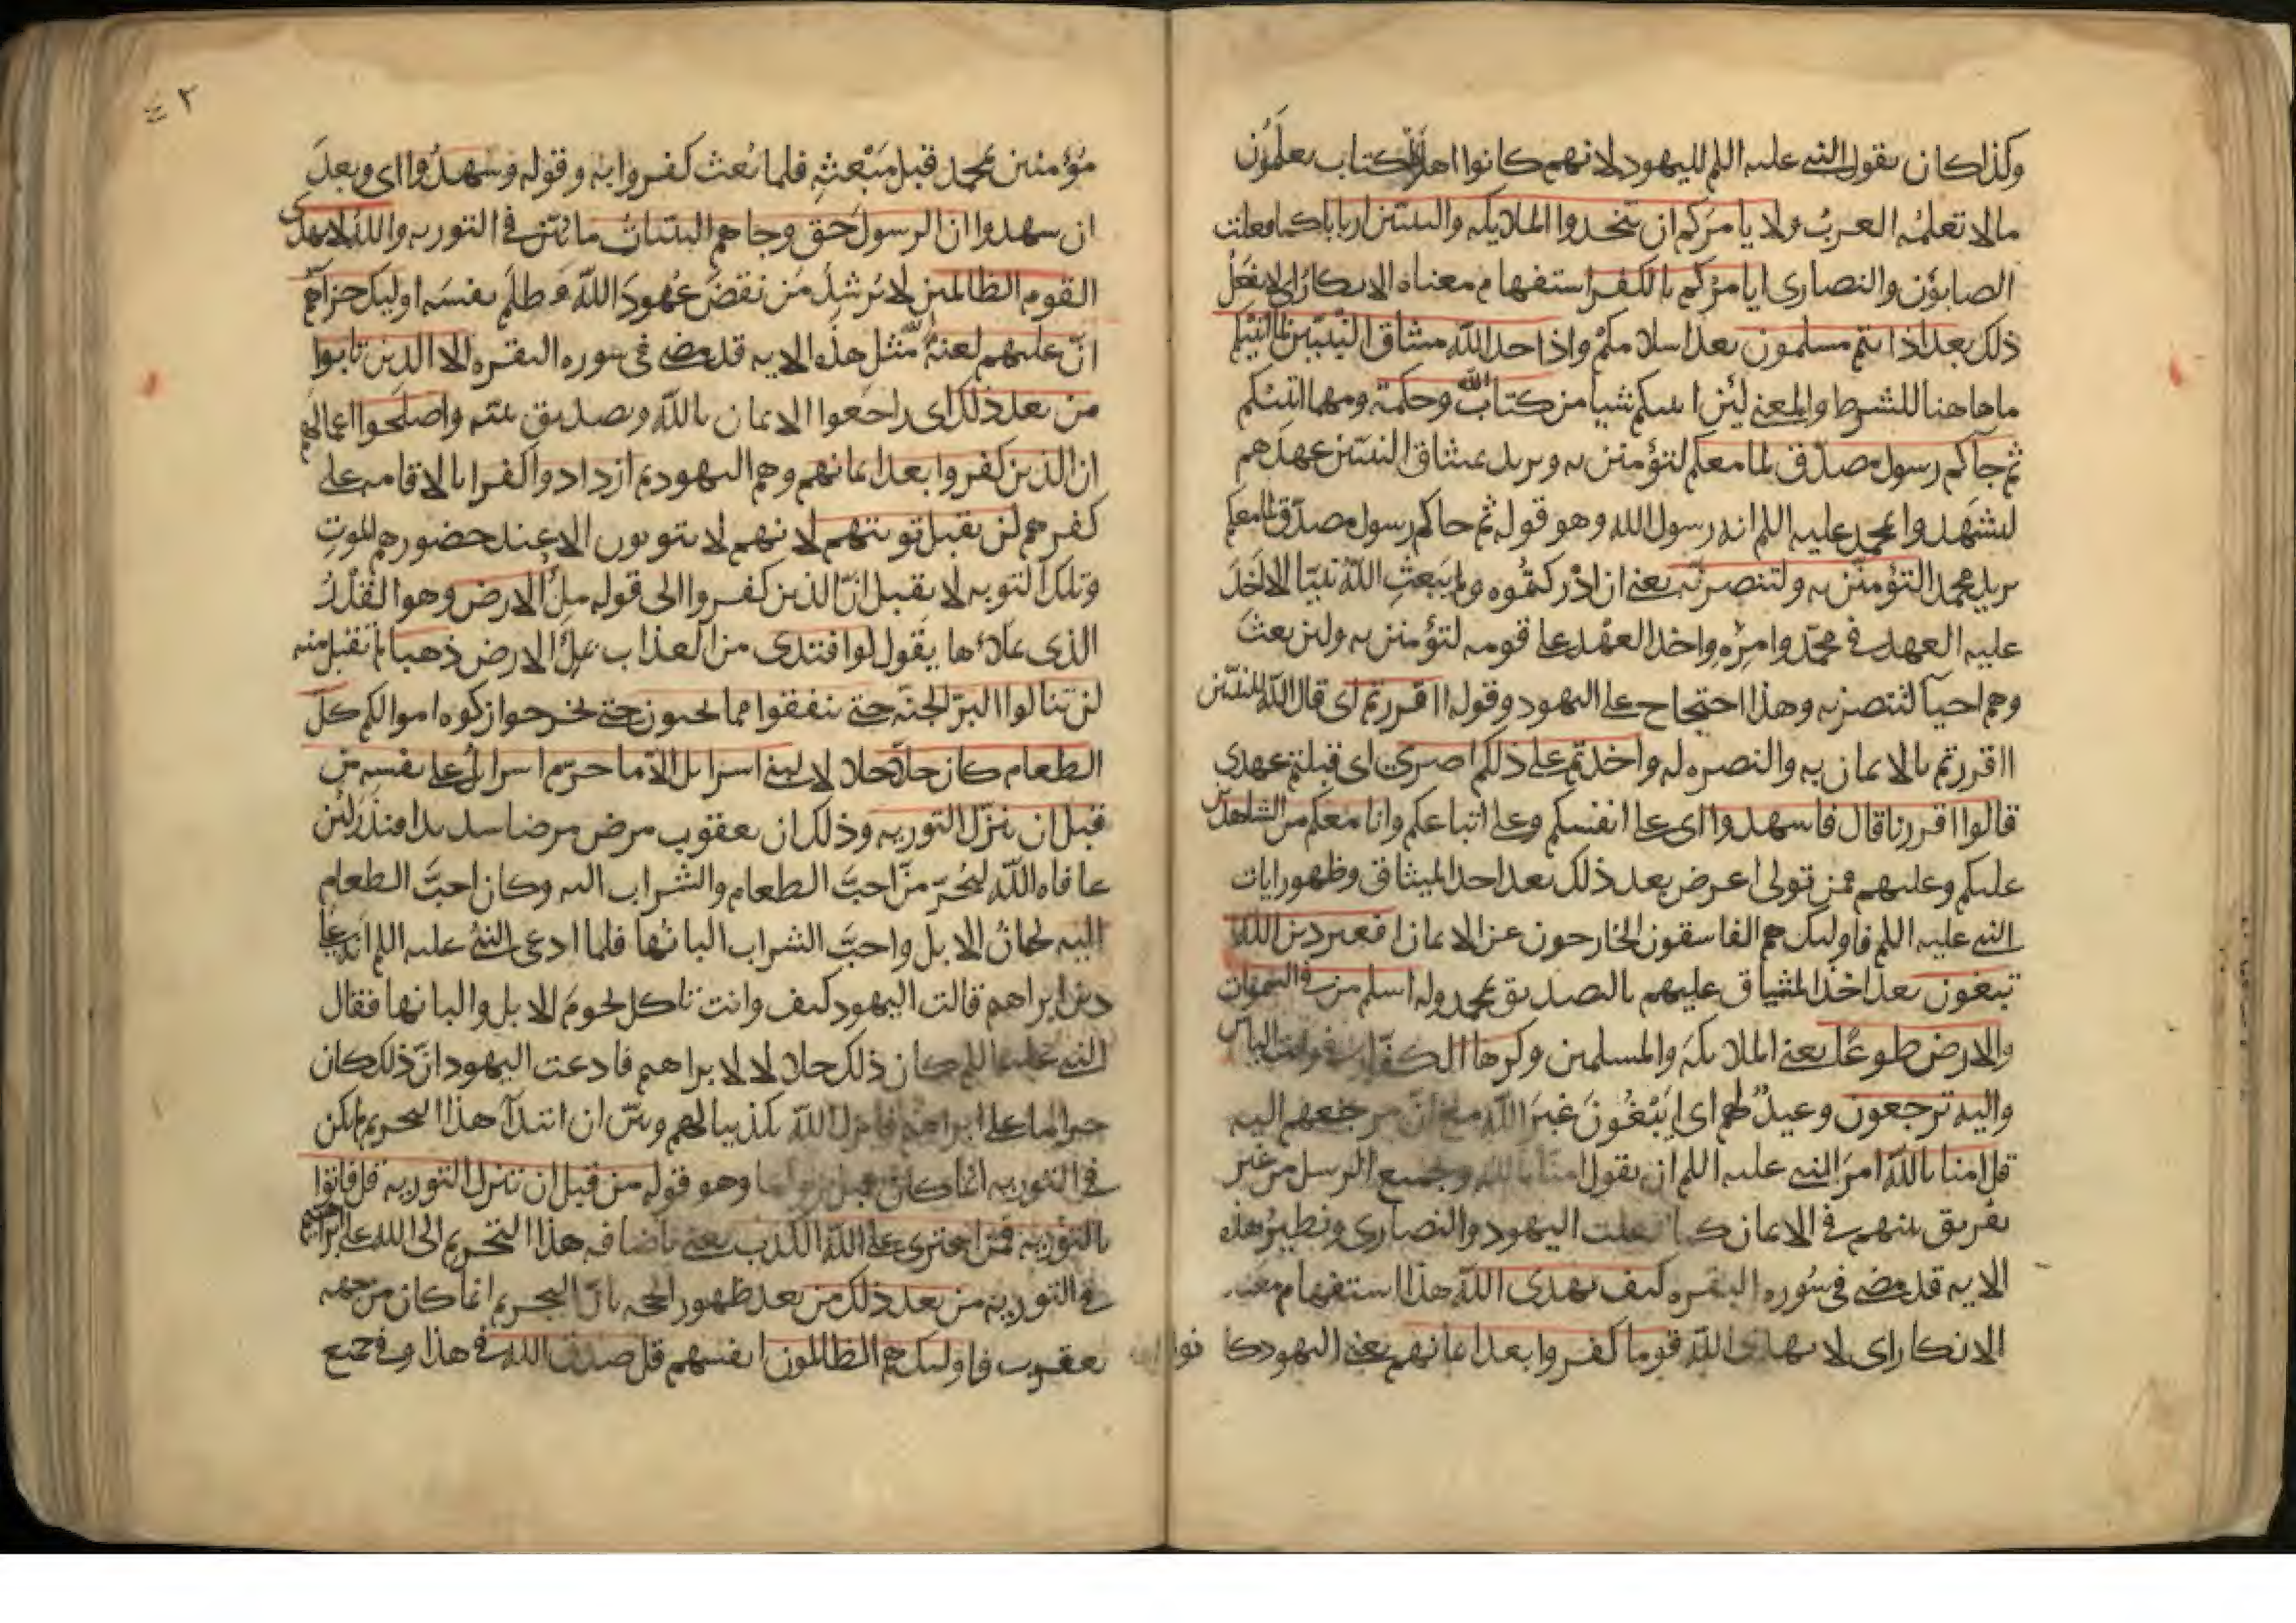 وكذا كان يقول النبي عليه السلم لليهود لانهم كانوا اهل كتاب يعلمون
مالا تعلمه العرب ولا يامركم ان تتخذوا الملايكه والنبيين اربابا كما فعلت
الصابؤن والنصارى ايامركم بالكفر استفهام معناه الانكار اى لا يفعل
ذلك بعد اذ انتم مسلمون بعد اسلامكم واذ اخذ الله ميثاق النبيين لما اتيتكم
ما هاهنا للشرط والمعنى لئن اتيتكم شيا من كتاب وحكمة ومهما اتيتكم
ثم جاكم رسول مصدق لما معكم لتؤمنن به ويريد بميثاق النبيين عهدهم
ليشهدوا لمحمد عليه السلم انه رسول الله وهو قوله ثم جاكم رسول مصدق لما معكم
يريد محمد التؤمنن به ولتنصرنه يعنى ان ادركتموه ولم يبعث الله نبيا الا اخذ
عليه العهد فى محمد وامره واخذ العهد على قومه لتؤمنن به ولئن بعث
وهم احيآ لتنصرنه وهذا احتجاح على اليهود وقوله ااقررتم اى قال الله للنبيين
ااقررتم بالايمان به والنصره له واخذتم على ذلكم اصرى اى قبلتم عهدى
قالوا اقررنا قال فاشهدوا اى على انفسكم وعلى اتباعكم وانا معكم من الشاهدين
عليكم وعليهم فمن تولى اعرض بعد ذلك بعد اخذ الميثاق وظهور ايات
النبى عليه السلم فاوليك هم الفاسقون الخارجون عن الايمان افغير دين الله
تبغون بعد اخذ الميثاق عليهم بالتصديق بمحمد وله اسلم من فى السموات
والارض طوعا يعنى الملايكة والمسلمين وكرها الكفار فى وقت الباس
واليه ترجعون وعيد لهم اى ايبغون غير الله مع ان مرجعهم اليه
قل امنا بالله امر النبى عليه السلم ان يقول امنا بالله وجميع الرسل من غير
تفريق بينهم فى الايمان كما فعلت اليهود والنصارى ونظير هذه
الايه قد مضى فى سوره البقره كيف يهدى الله هذا استفهام معنـ
الانكار اى لا يهدى الله قوما كفروا بعد ايمانهم يعنى اليهود كا نوا
٤٢
مؤمنين بمحمد قبل مبعثه فلما بعث كفروا به وقوله وشهدوا اى وبعد
ان شهدوا ان الرسول حق وجاهم البينات ما بين فى التوريه والله لا يهدى
القوم الظالمين لا يرشد من نقض عهود الله وظلم نفسه اوليك جزآهم
ان عليهم لعنة مثل هذه الايه قد مضى فى سوره البقره الا الذين تابوا
من بعد ذلك اى راجعوا الايمان بالله وتصديق نبيه واصلحوا اعمالهم
ان الذين كفروا بعد ايمانهم وهم اليهود ثم ازدادوا كفرا بالاقامه على
كفرهم لن تقبل توبتهم لانهم لا يتوبون الا عند حضورهم الموت
وتلك التوبه لا تقبل ان الذين كفروا الى قوله ملؤ الارض وهو القدر
الذى يملاءها يقول لو افتدى من العذاب بملؤ الارض ذهبا لم تقبل منه
لن تنالوا البر الجنه حتى تنفقوا مما تحبون حتى تخرجوا زكوه اموالكم كل
الطعام كان حلا حلالا لبنى اسرايل الا ما حرم اسرايل على نفسه من
قبل ان تنزل التوريه وذلك ان يعقوب مرض مرضا شديدا فنذر لئن
عافاه الله ليحرمن احب الطعام والشراب اليه وكان احب الطعام
اليه لحمان الابل واحب الشراب البانها فلما ادعى النبى عليه السلم انه على
دين ابراهم قالت اليهود كيف وانت تاكل لحوم الابل والبانها فقال
النبى عليه السلم كان ذلك حلالا لابراهيم فادعت اليهود ان ذلك كان
حراما على ابراهيم فانزل الله تكذيبا لهم وبين ان ابتدآ هذا التحريم لم يكن
فى التوريه انما كان قبل نزولها وهو قوله من قبل ان تنزل التوريه قل فاتوا
بالتوريه فمن افترى على الله الكذب يعنى باضافه هذا التحريم الى الله على ابراهيم
فى التوريه من بعد ذلك من بعد ظهور الحجه بان التحريم انما كان من جهه
يعقوب فاوليك هم الظالمون انفسهم قل صدق الله فى هذا وفى جميع